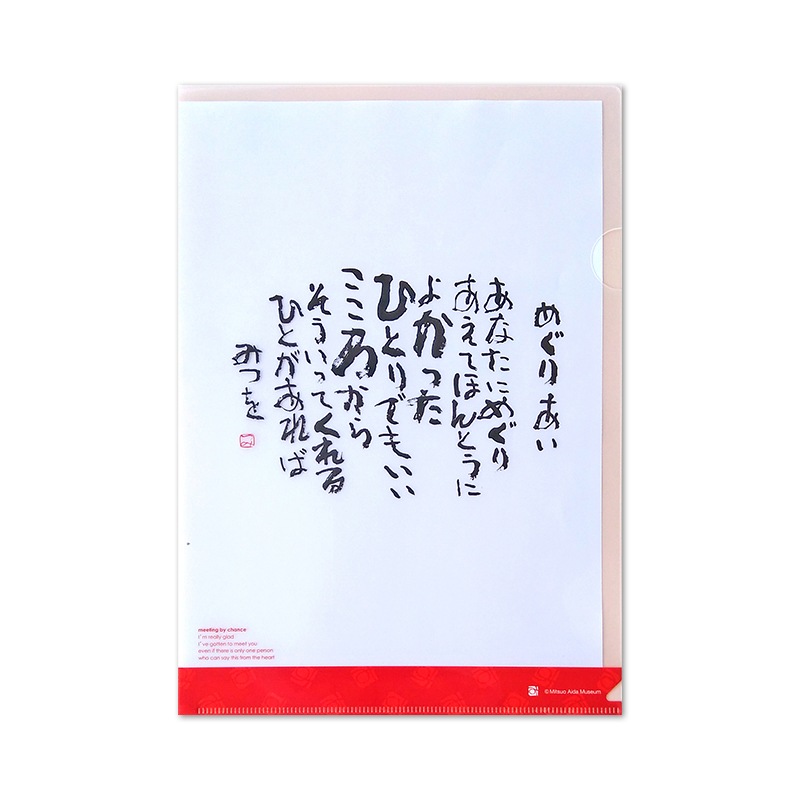 めぐりあい
あなたにめぐり
あえてほんとうに
よかった
ひとりでもいい
こころから
そういってくれる
ひとがあれば
みつを
meeting by chance
I'm really glad
I've gotten to meet you
even if there is only one person
who can say this from the heart
© Mitsuo Aida Museum